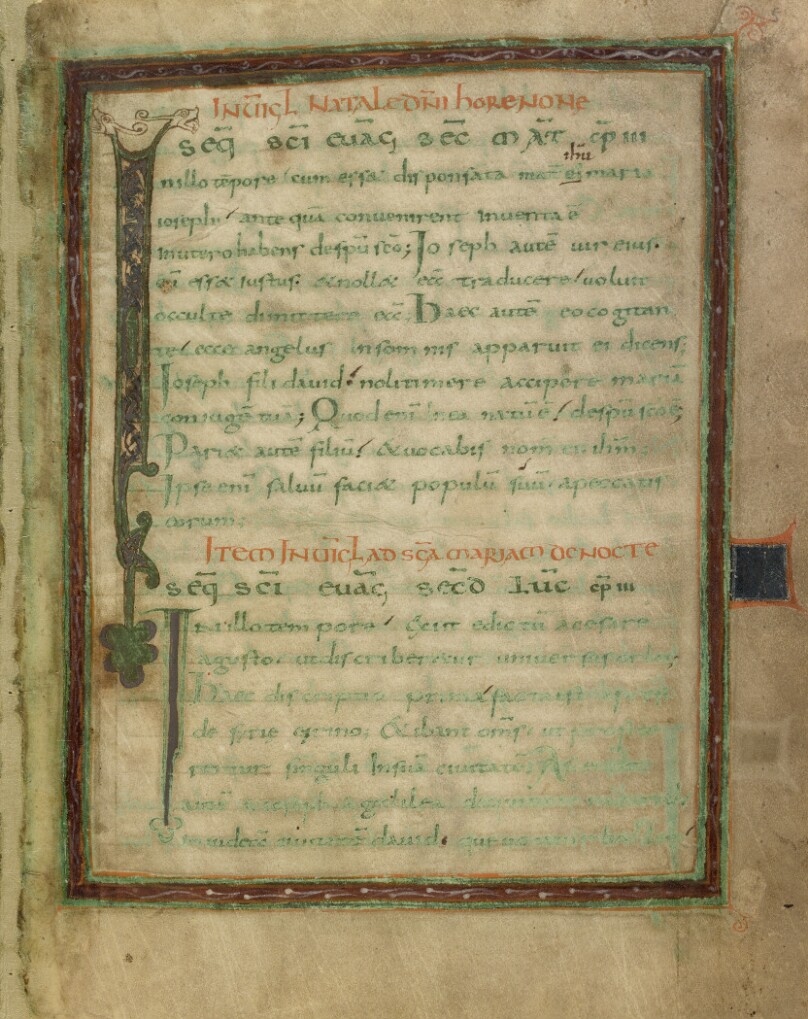 IN UIGL NATALE DNI hORE NONE
SEQ SCI EUAG SEC MAT CP III
ihu
n illo tēpore / cum esset disponsata mat ei maria
ioseph / ante quā convenirent inventa ē
inutero habens despu scō; Ioseph autē uir eius.
cū esset iustus. & nollet eā traducere / uoluit
occulte dimittere eā; Haec autē eo cogitan
te / ecce angelus In somnis apparuit ei dicens;
Ioseph fili david noli timere accipere mariā
coniugē tuā; Quod enī In ea natū ē / despu scō ē;
Pariet autē filiū / & uocabis nom
Ipse enī saluū faciet populū suū. apeccatis
eorum;
ITEM IN UIGL AD SCA MARIAM DE NOCTE
SEQ SCI EUAG SECD LUC CP III
In illo tempore / Exiit edictū acesare
agusto. ut discriberetur uniuersus orbis;
Haec discriptio prima facta est
de syrie cirino; & ibant oms. ut
singuli In suā ciuitatē;
autē & ioseph. a galilea
ciuitatē david.